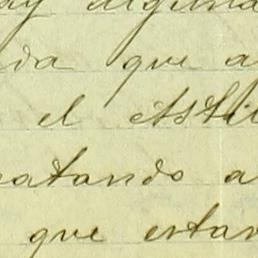 ay alguna
da que a
el Asti
ratando a
que estar